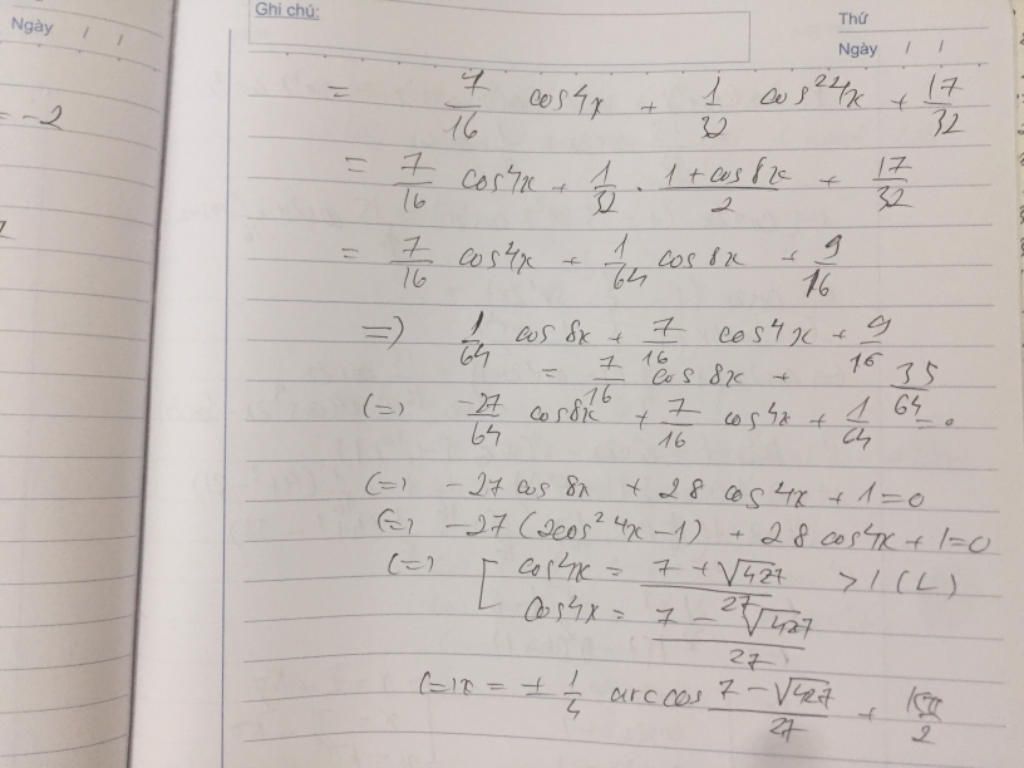 Ngày / /
Ghi chú:
Thứ
Ngày / /
= -2
= 7/16 cos4x + 1/32 cos²4x + 17/32
= 7/16 cos4x + 1/32 . (1 + cos8x)/2 + 17/32
= 7/16 cos4x + 1/64 cos8x + 9/16
=> 1/64 cos8x + 7/16 cos4x + 9/16
= 7/16 cos8x + 35/64
(=) -27/64 cos8x + 7/16 cos4x + 1/64 = 0
(=) -27 cos8x + 28 cos4x + 1 = 0
(=) -27 (2cos²4x - 1) + 28 cos4x + 1 = 0
(=) [ cos4x = (7 + √427)/27 > 1 (L)
cos4x = (7 - √427)/27
(=) x = ± 1/4 arccos (7 - √427)/27 + kπ/2